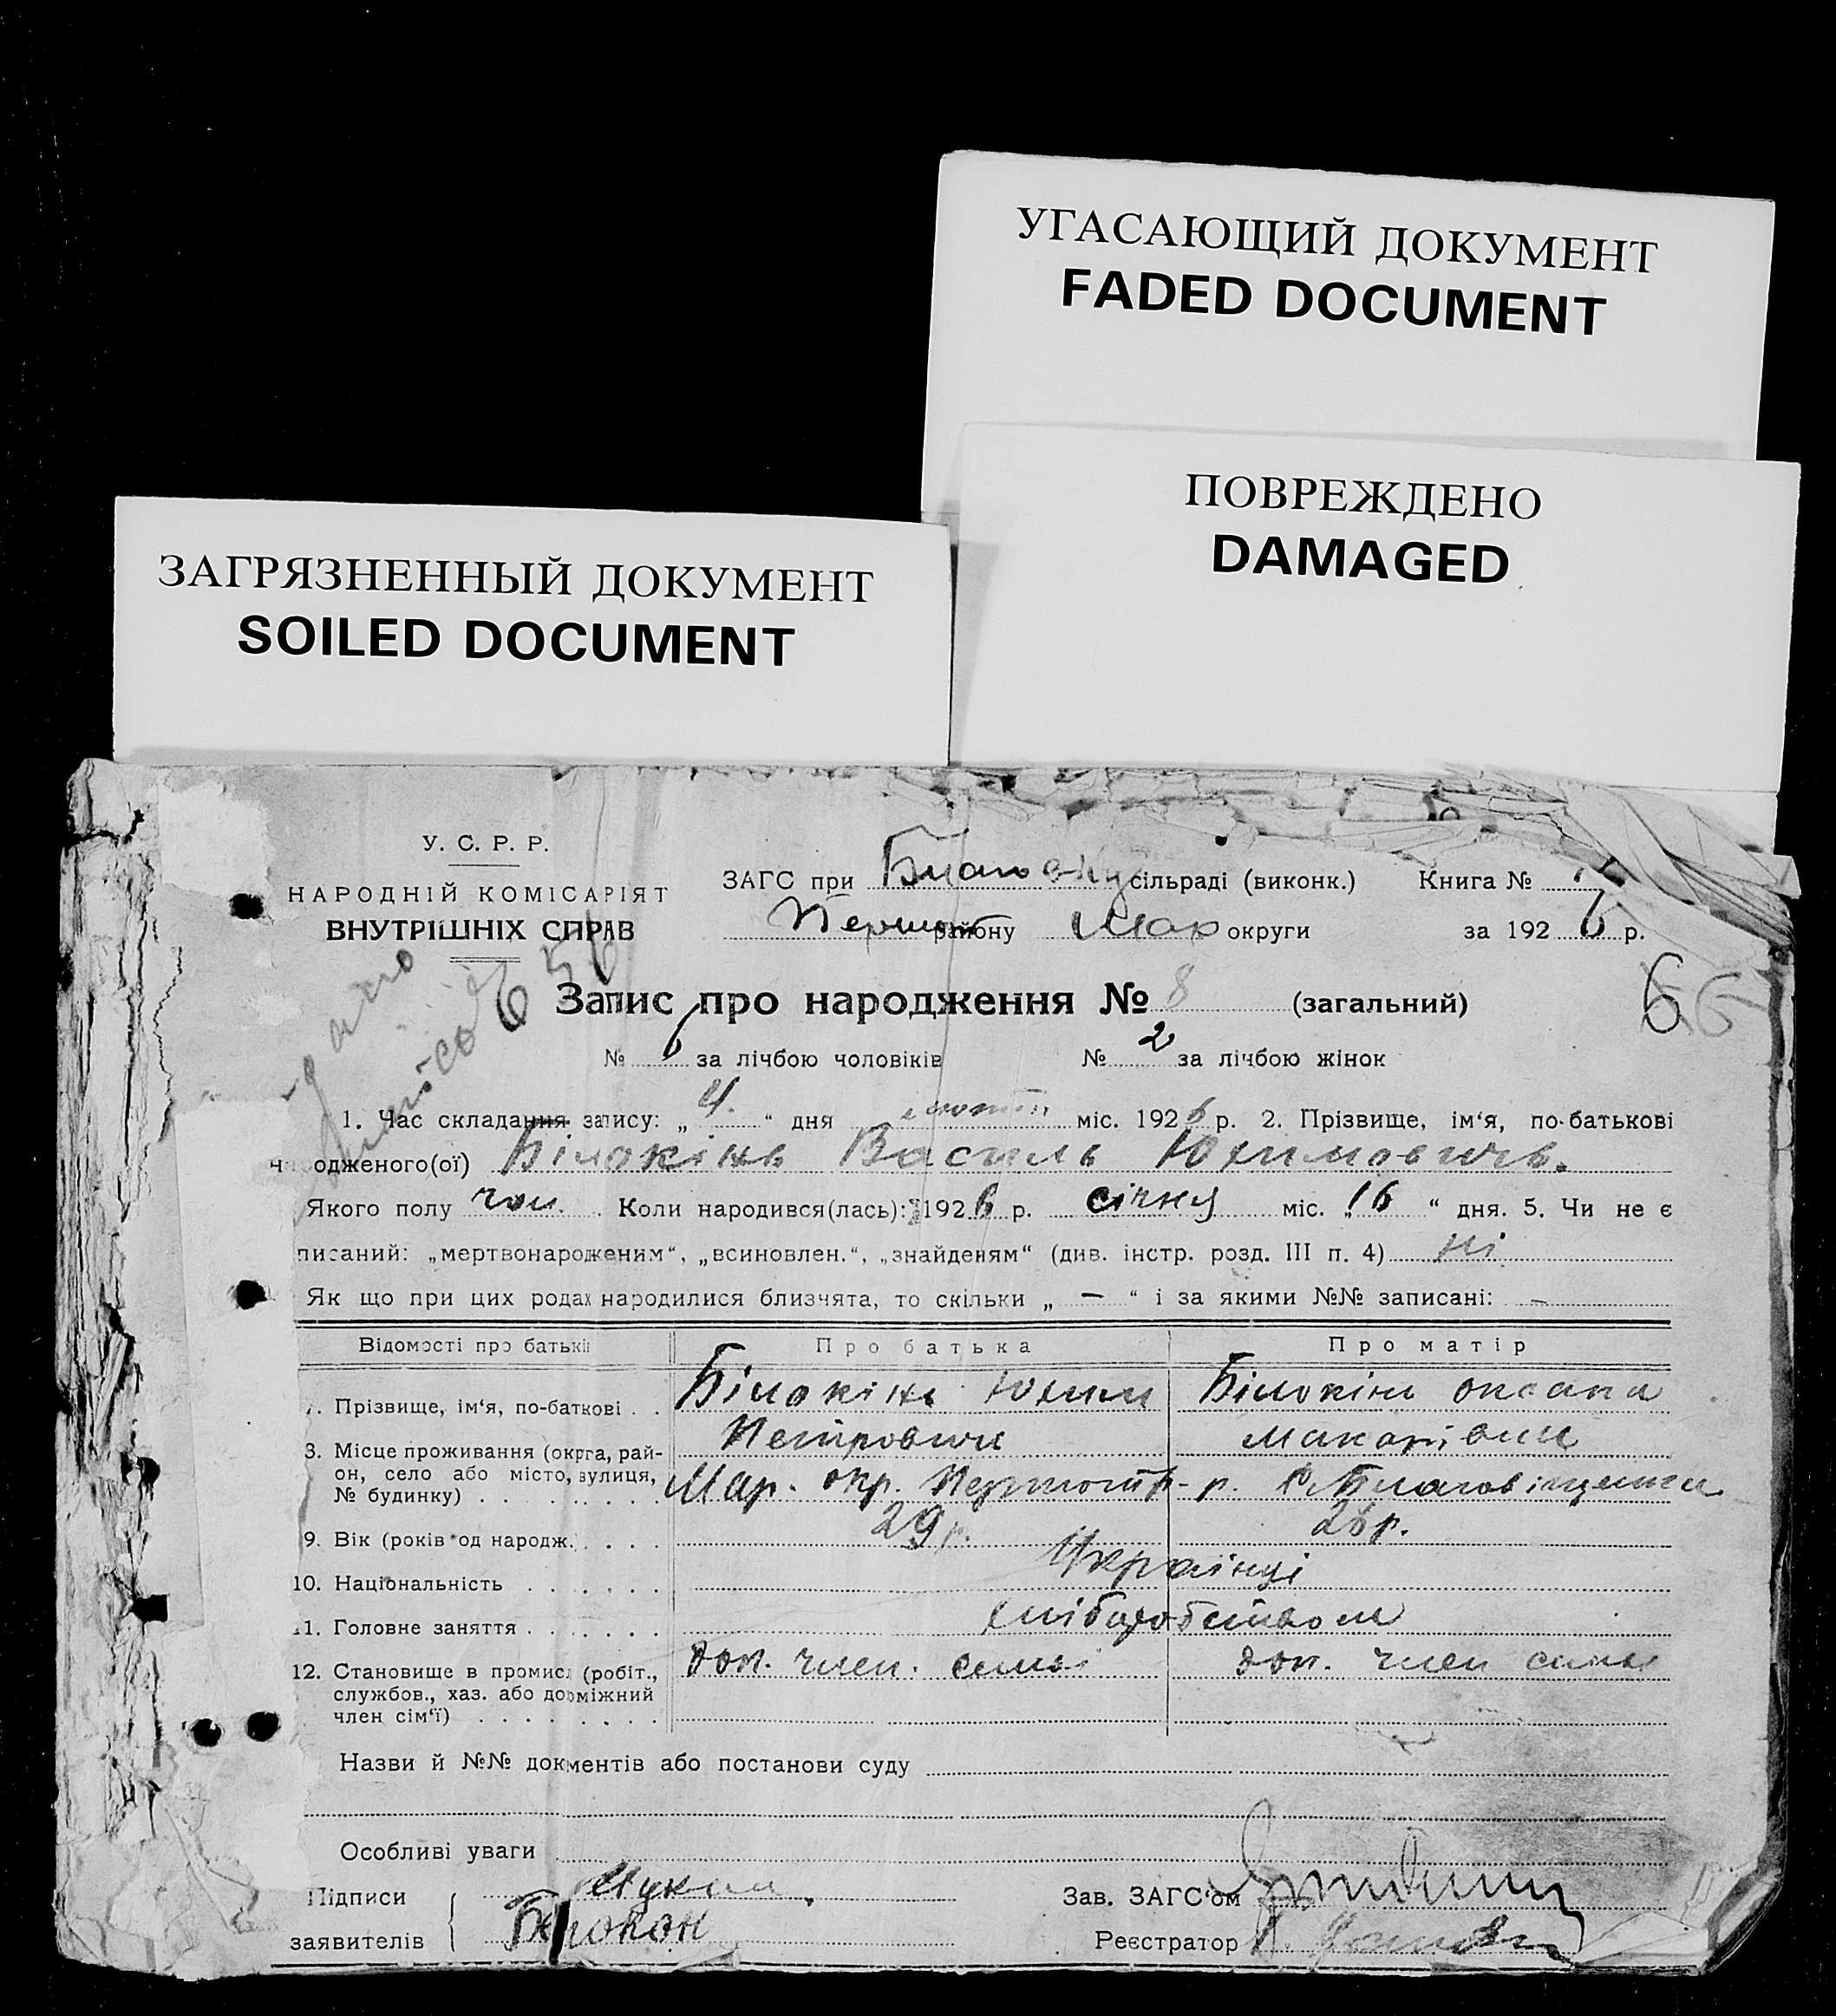 УГАСАЮЩИЙ ДОКУМЕНТ
FADED DOCUMENT
ПОВРЕЖДЕНО
DAMAGED
ЗАГРЯЗНЕННЫЙ ДОКУМЕНТ
SOILED DOCUMENT
У. С. Р. Р.
НАРОДНІЙ КОМІСАРІЯТ
ВНУТРІШНІХ СПРАВ
ЗАГС при сільраді (виконк.) Книга №
району Мар округи за 1926 р.
Запис про народження № 8 (загальний)
6
№ 6 за лічбою чоловіків № 2 за лічбою жінок
1. Час складання запису: „ 4. “ дня міс. 1926 р. 2. Прізвище, ім‘я, по-батькові
народженого(ої) Білокінь Василь Юхимовичь.
Якого полу чол. Коли народився(лась): 1926 р. січня міс. „16 “ дня. 5. Чи не є
писаний: „мертвонародженим“, „всиновлен.“, „знайденям“ (див. інстр. розд. III п. 4) ні
Як що при цих родах народилися близнята, то скільки „ — “ і за якими №№ записані: —
Відомості про батьків Про батька Про матір
7. Прізвище, ім‘я, по-баткові . . Білокінь Юхим Білокінь оксана
Петрович Макарівна
8. Місце проживання (округа, рай-
он, село або місто, вулиця, Мар. окр. р. с. Благовіщенка
№ будинку) . . . . . . . . .
9. Вік (років од народж.) . . . . 29 р. 26 р.
10. Національність . . . . . . . Українці
11. Головне заняття . . . . . . . хліборобством
12. Становище в промисл (робіт., доп. член. семьі доп. член семьі
службов., хаз. або допоміжний
член сім‘ї) . . . . . . . .
Назви й №№ документів або постанови суду
Особливі уваги
Підписи
Зав. ЗАГС‘ом
заявителів
Реєстратор